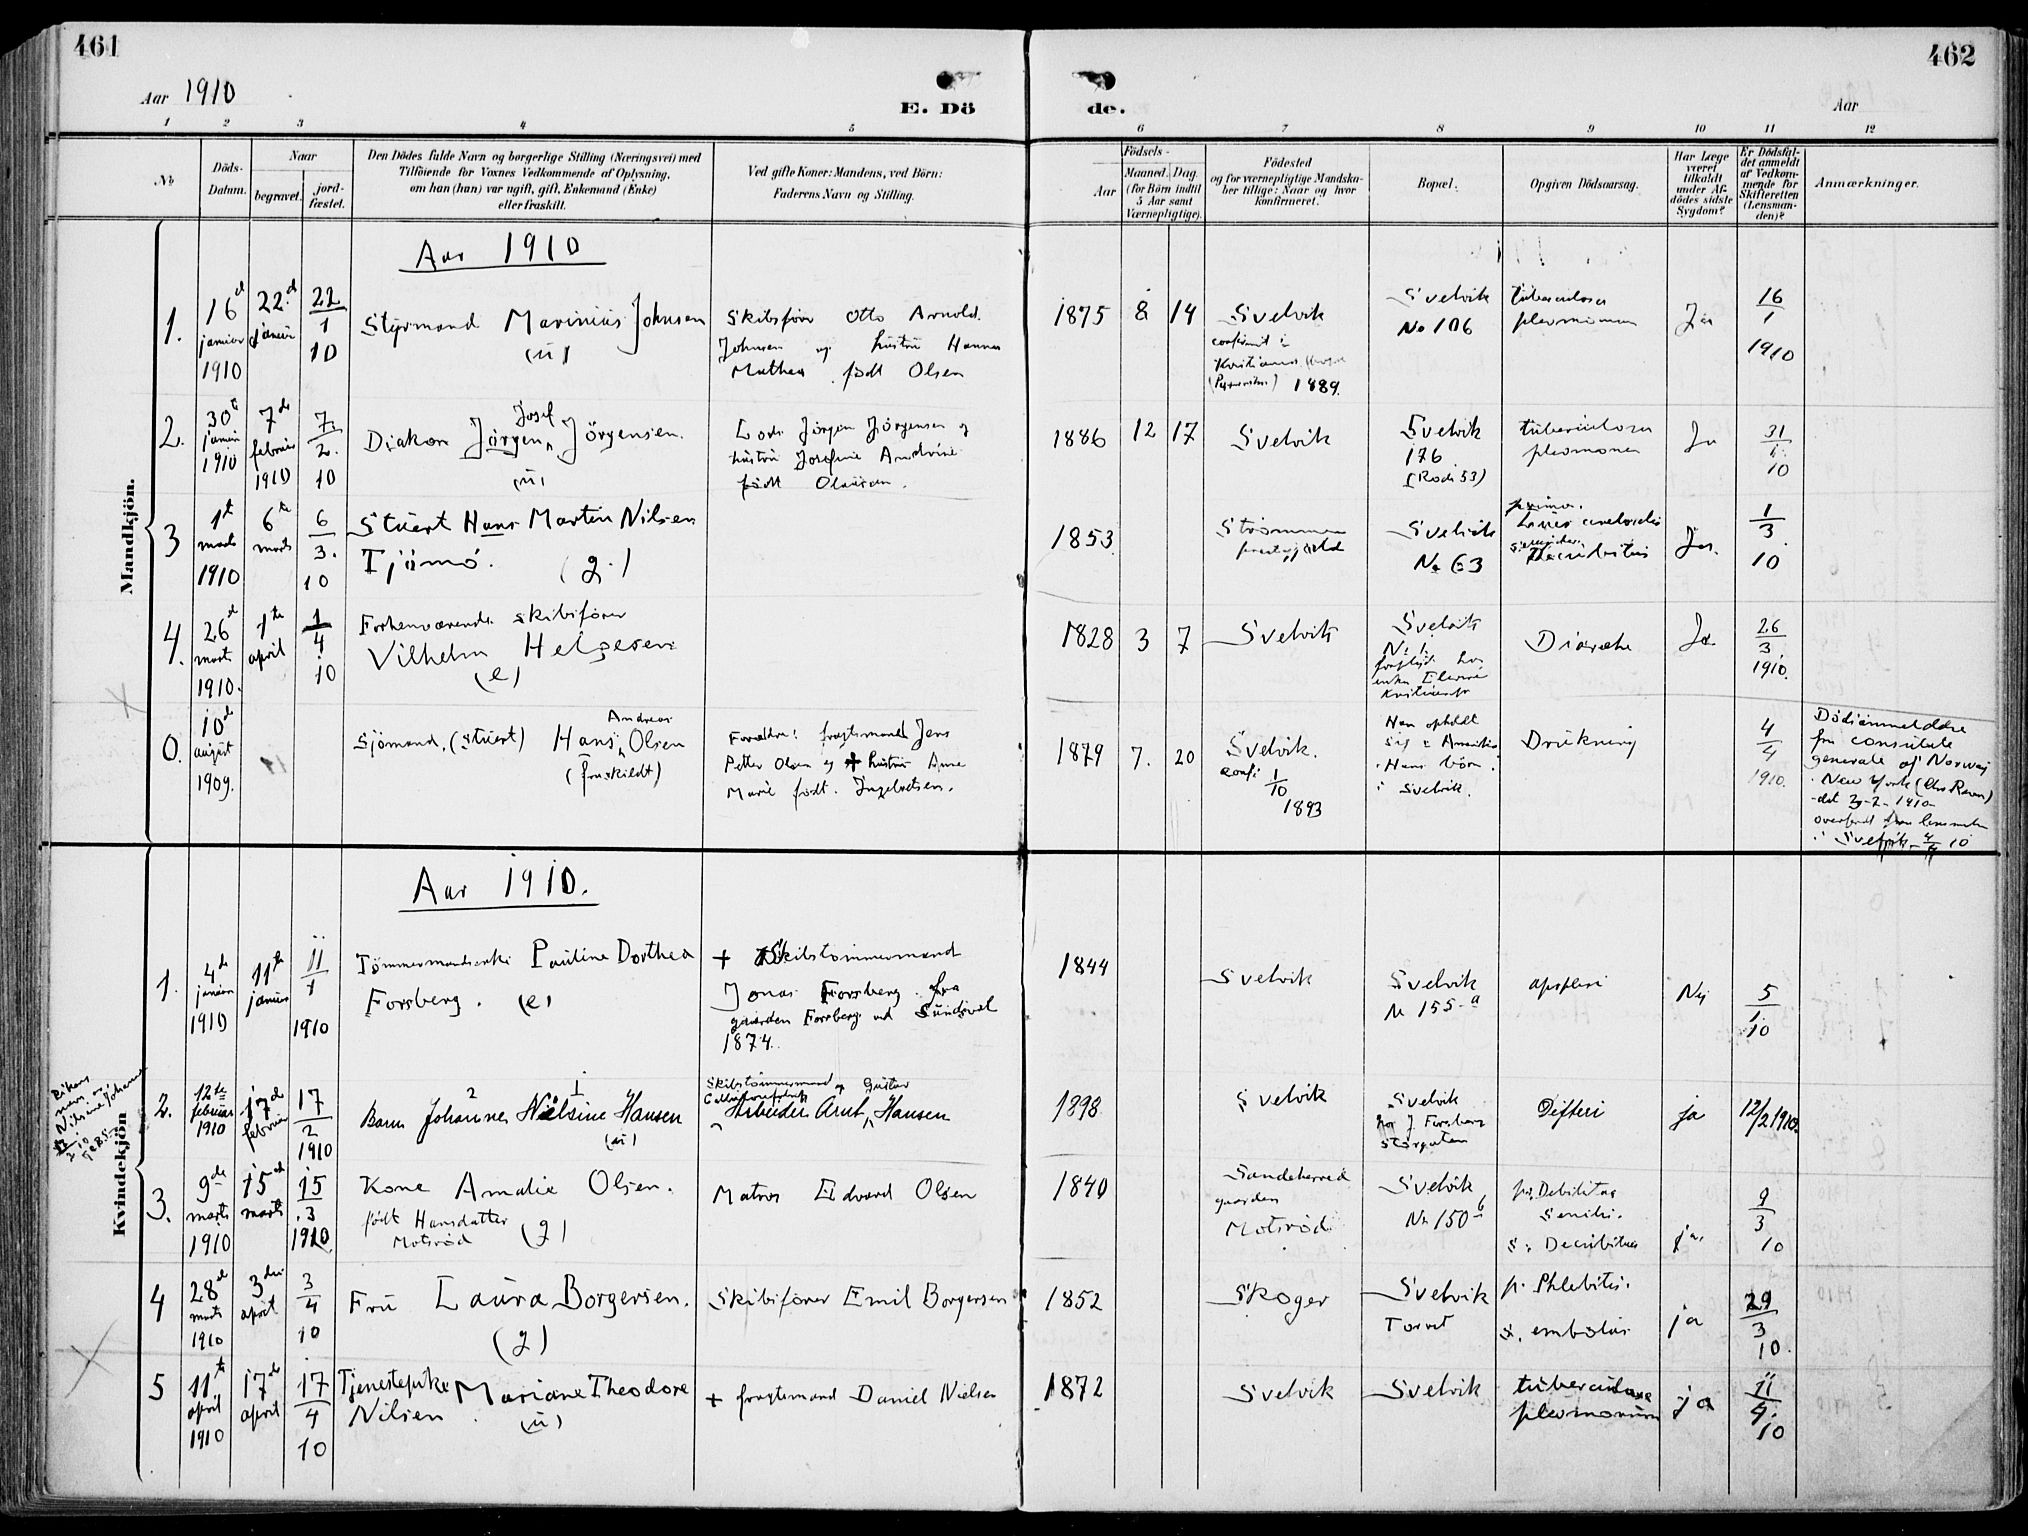 461
462
Aar 1910
E. Dö de.
Aar
1 2 3 4 5 6 7 8 9 10 11 12
No
Döds-Datum.
Naar
begravet.
jord-fæstet.
Den Dödes fulde Navn og borgerlige Stilling (Næringsvei) med
Tilföiende for Voxnes Vedkommende af Oplysning,
om han (hun) var ugift, gift, Enkemand (Enke)
eller fraskilt.
Ved gifte Koner: Mandens, ved Börn:
Faderens Navn og Stilling.
Födsels-
Aar
Maaned. Dag.
(for Börn indtil
5 Aar samt
Værnepligtige).
Födested
og for værnepligtige Mandska-
ber tillige: Naar og hvor
konfirmeret.
Bopæl.
Opgiven Dödsaarsag.
Har Læge
været
tilkaldt
under Af-
dödes sidste
Sygdom?
Er Dödsfal-
det anmeldt
af Vedkom-
mende for
Skifteretten
(Lensman-
den)?
Anmærkninger.
Mandkjön.
Aar 1910
1.
16d januar 1910
22d januar
22/1 10
Styrmand Marinius Johnsen
(u)
Skibsförer Otto Arnold
Johnsen og hustru Hanna
Mathea födt Olsen
1875 8 14
Svelvik
1889.
Svelvik
No 106
Ja
16/1 1910
2.
30te januar 1910
7de februar 1910
7/2. 10
Diakon Jörgen Josef Jörgensen.
(u)
Lods Jörgen Jörgensen og
hustru Josefine Andrine
födt Olausen.
1886 12 17
Svelvik
Svelvik
176
(Rode 53)
Ja
31/1. 10
3
1te marts 1910
6te marts
6/3. 10
Stuert Hans Martin Nilsen
Tjömö. (g.)
1853
Strömmen
præstegjeld
Svelvik
No 63
Ja.
1/3. 10
4.
26d marts 1910.
1te april
1/4 10
Forhenværende skibsförer
Vilhelm Helgesen
(e)
1828 3 7
Svelvik
Svelvik
No 1.
Diarrhe
Ja
26/3. 1910.
0.
10de august 1909.
Sjömand, (stuert) Hans Andreas Olsen
(fraskildt)
Forældre: fragtemand Jens
Petter Olsen og + hustru Anne
Marie födt Ingebretsen.
1879 7. 20
Svelvik.
conf: 1/10 1893
Han opholdt
sig i Amerika
Hans börn
i Svelvik.
Drukning
4/4 1910.
Dödsanmeldelse
fra consulate
generale of Norway
New York (Chr Ravn)
det 23-2-1910
oversendt fra lensmanden
i Svelvik 4/4 10
Kvindekjön
Aar 1910.
1.
4de januar 1910
11te januar
11/1 1910
Tömmermandsenke Pauline Dorthea
Forsberg. (e)
+ Skibstömmermand
Jonas Forsberg fra
gaarden Forsberg ved Sundsval
1874.
1844
Svelvik
Svelvik
No 155-a
apoplexi
Nei
5/1. 10
2.
12te februar 1910
17de februar
17/2 1910
Barn Johanne Nielsine Hansen
(u)
Skibstömmermand og Gustav
Arbeider Arnt Hansen
1898
Svelvik
Svelvik
hos J. Forsberg
Storgaten
Difteri
ja
12/2 1910.
3.
9de marts 1910
15d marts
15/3 1910
Kone Amalie Olsen.
födt Hansdatter
Motsröd (g)
Matros Edvard Olsen
1840
Sandeherred
gaarden
Motsröd
Svelvik
No 150 b
pr. Debilitas
senilis.
s: Decubitus
ja.
9/3 10
4
28d marts 1910
3die april
3/4 10
Fru Laura Borgersen.
(g)
Skibsförer Emil Borgersen
1852
Skoger
Svelvik
Torvet
p. Phlebitis.
s. embolus
ja
29/3 10.
5
11te april 1910
17de april
17/4 10
Tjenestepike Mariane Theodore
Nilsen (u)
+ fragtemand Daniel Nielsen
1872
Svelvik
Svelvik
tuberculose
pleomonum
ja
11/4. 10